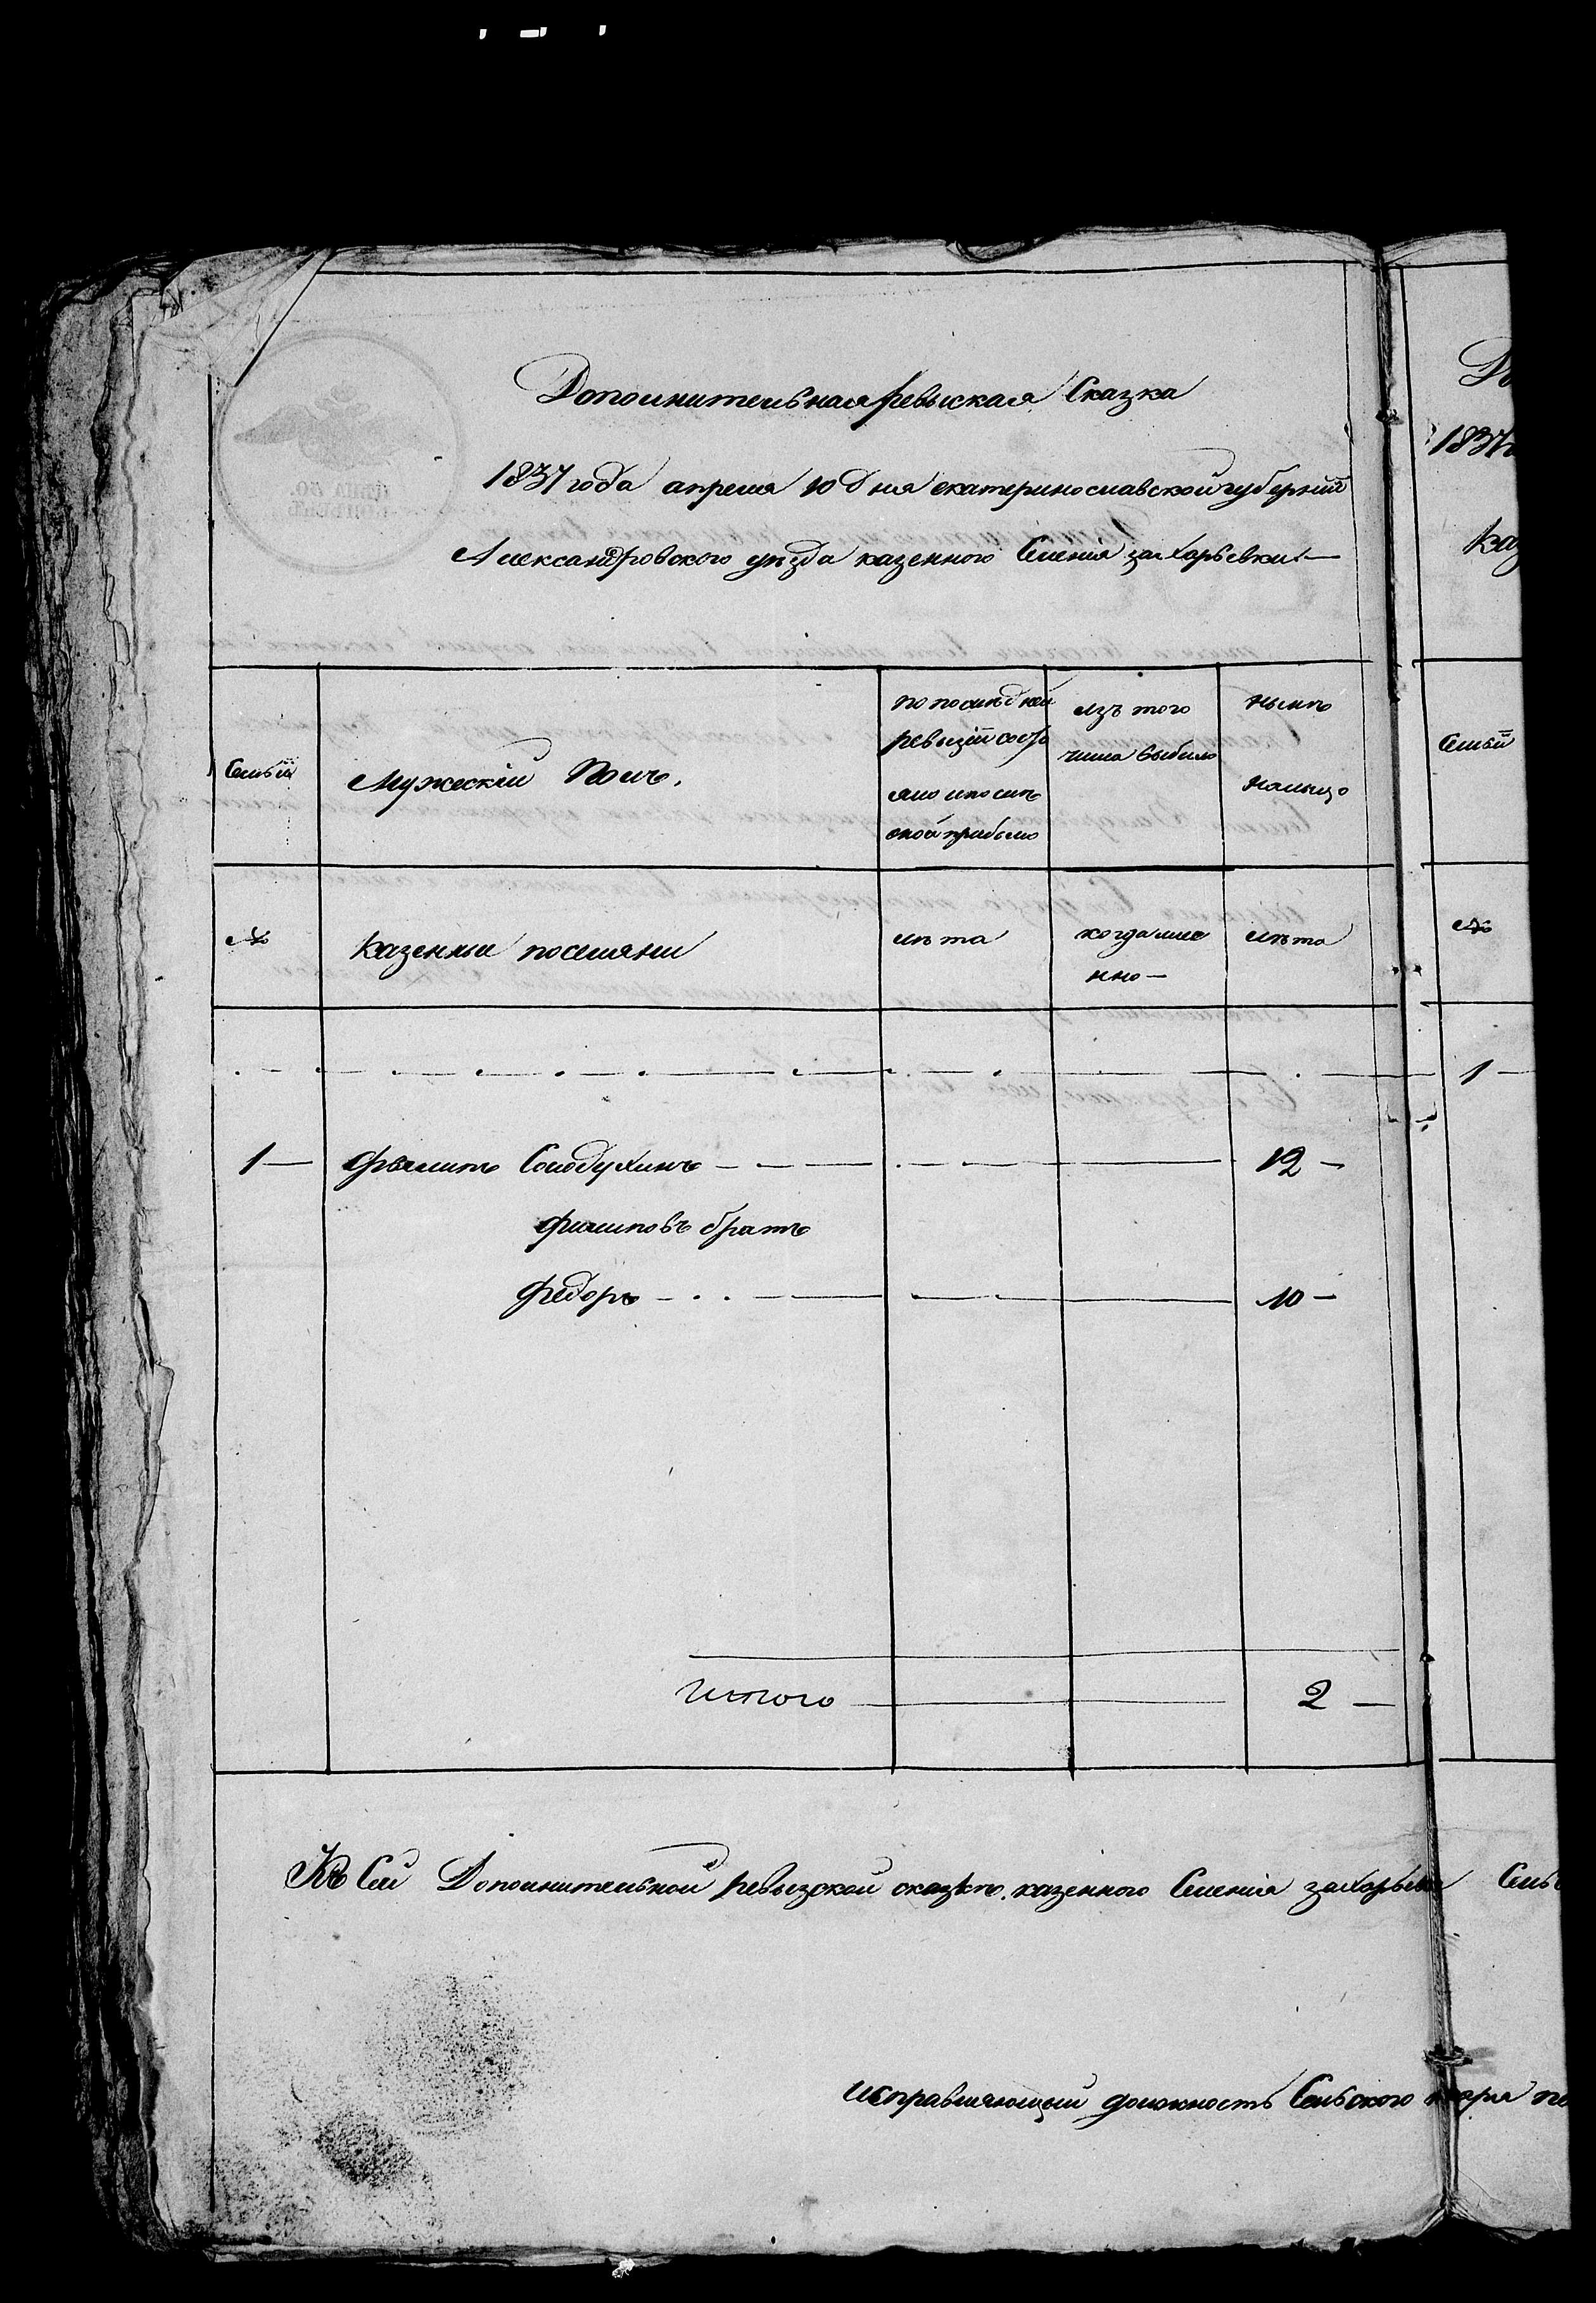 Дополнительная ревыская Сказка
1837 года апреля 10 дня екатеринославской губерніи
Александровского уѣзда казенного Селенія захарьевки
Семьи
Мужескій Полъ.
по послѣдней
ревызіи состо
яло и после
оной прибыло
изъ того
числа выбыло
нынѣ
налыцо
№
казенные поселяны
лѣта
когда име
нно
лѣта
1 Филипъ Солодухинъ 12
Филиповъ братъ
Федоръ 10
Итого 2
Къ Сей Дополнительной ревызской сказкѣ казенного Селенія захарьевки
исправляющый должность Сельского
1837
Каз
Семьи
№
1